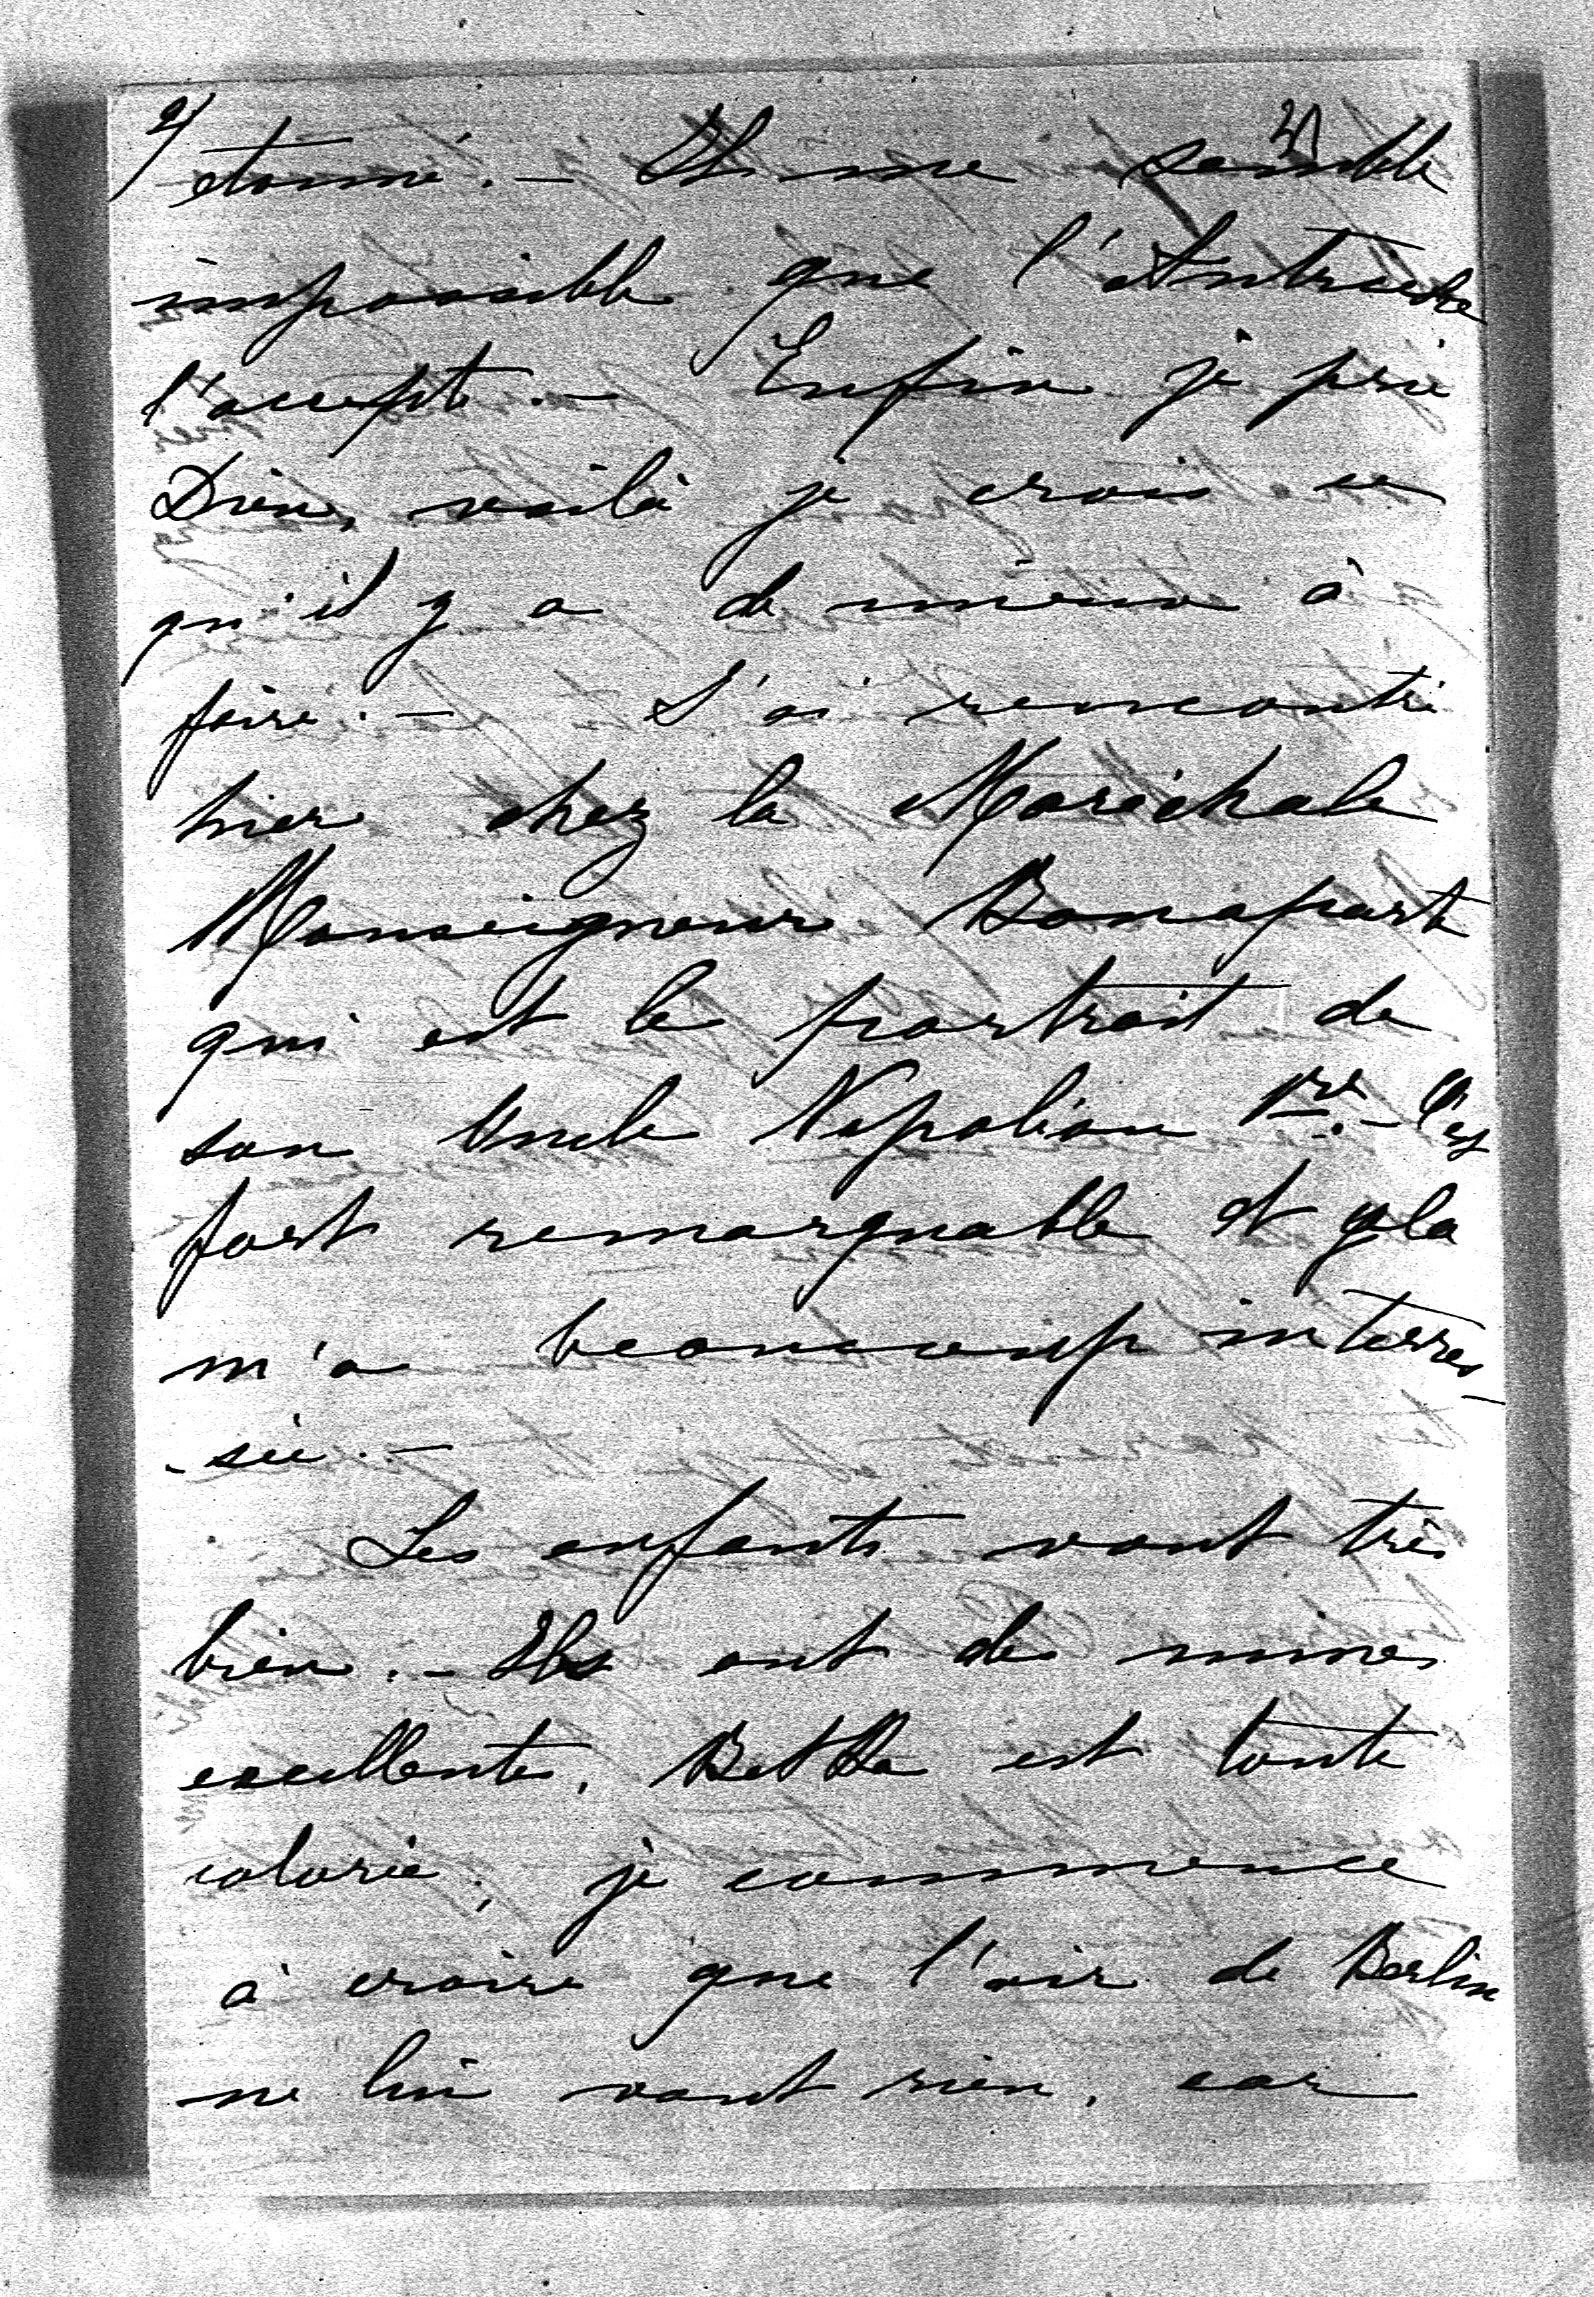 2/
31
étonné. – Il me semble
impossible que l'Autriche
l'accepte. – Enfin je prie
Dieu, voilà je crois ce
qu'il y a de mieux à
faire. – J'ai rencontré
hier chez la Maréchale
Monseigneur Bonaparte
qui est le portrait de
son Uncle Napoléon 1er. – C'es
fort remarquable et cela
m'a beaucoup interres-
-sée. –
Les enfants vont très
bien. – Ils ont des mines
excellentes, Betka est toute
colorée, je commence
à croire que l'air de Berlin
ne lui vaut rien, car